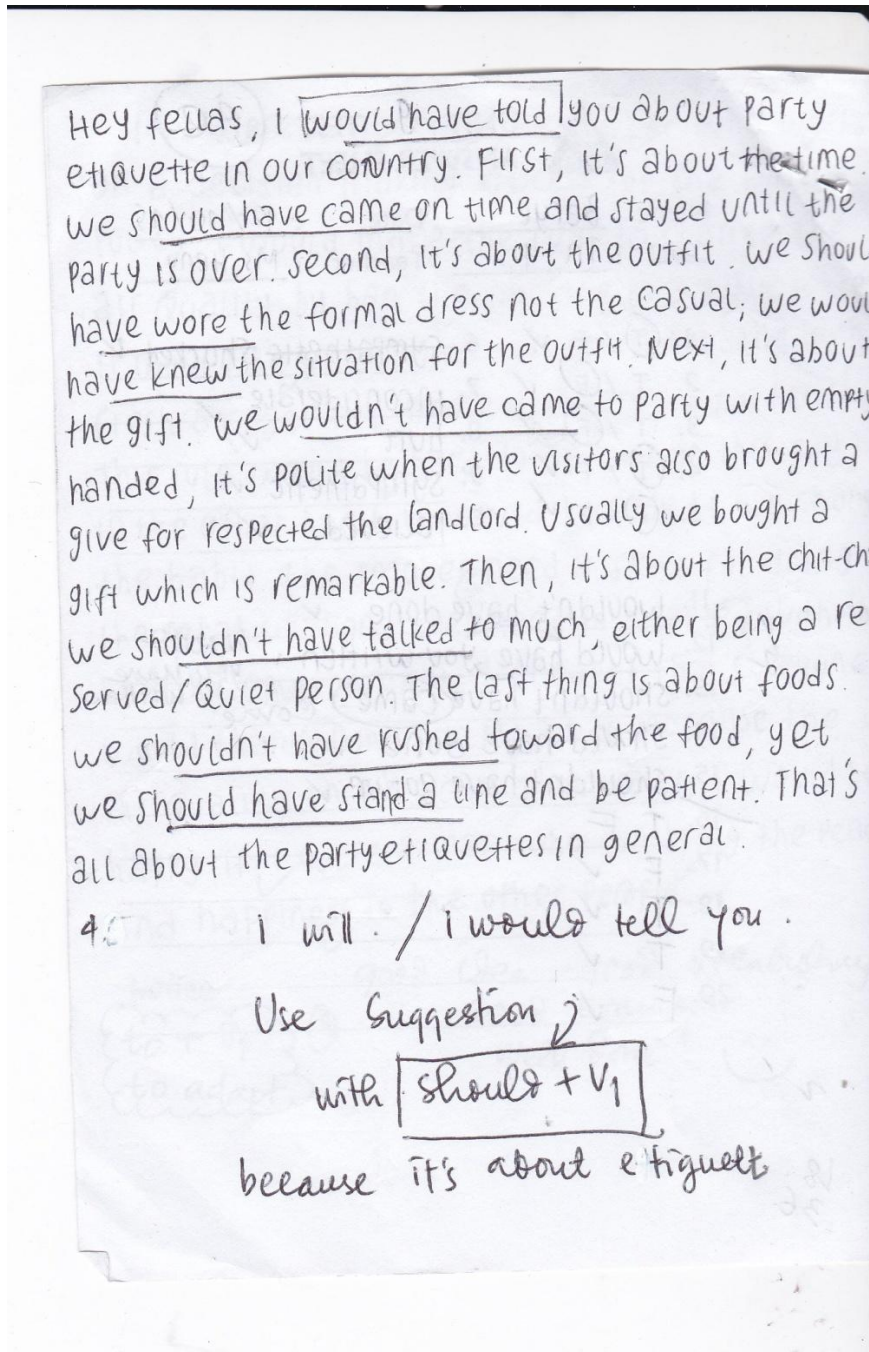 Hey fellas, I would have told you about party
etiquette in our country. First, it's about the time.
we should have came on time and stayed until the
party is over. Second, it's about the outfit. we Shoul
have wore the formal dress not the casual; we woul
have knew the situation for the outfit. Next, it's about
the gift. we wouldn't have came to party with empty
handed, it's polite when the visitors also brought a
give for respected the landlord. Usually we bought a
gift which is remarkable. Then, it's about the chit-ch
we shouldn't have talked to much, either being a re
served/Quiet person. The last thing is about foods.
we shouldn't have rushed toward the food, yet
we should have stand a line and be patient. That's
all about the party etiquettes in general.
4. i will. / i would tell you.
Use Suggestion
with should + V1
because it's about etiquett